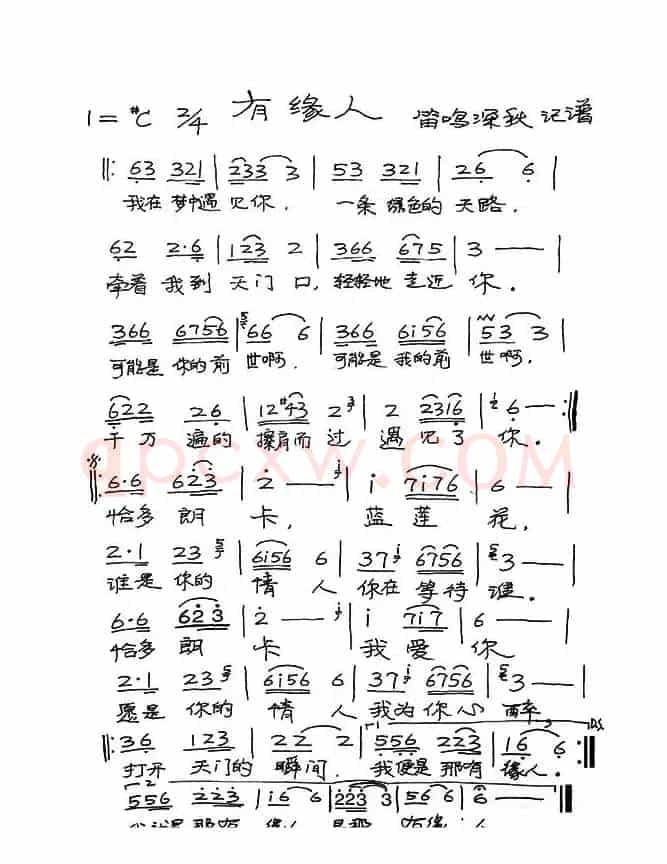 1=#C 2/4 有缘人 笛鸣深秋 记谱
‖: 63 321 | 233 3 | 53 321 | 26 6 |
我在 梦中遇 见你. 一条 绿色的 天路.
62 2·6 | 123 2 | 366 675 | 3 — |
牵着 我到 天门 口, 轻轻地 走近 你.
366 6756 | 66 6 | 366 6i56 | 53 3 |
可能是 你的前 世啊. 可能是 我的前 世啊.
622 26 | 12#43 2 3 | 2 2316 | 6 — :‖
千万 遍的 擦肩而 过 遇见了 你.
qpcxw.com
‖: 6·6 623 | 2 — | i 7i76 | 6 — |
恰多 朗 卡, 蓝莲 花,
2·1 23 5 | 6i56 6 | 37 i 6756 | 3 — |
谁是 你的 情人 你在 等待 谁.
6·6 623 | 2 — | i 7i7 | 6 — |
恰多 朗 卡 我爱 你
2·1 23 5 | 6i56 6 | 37 i 6756 | 3 — |
愿是 你的 情人 我为 你心 醉
D.S
‖: 36 123 | 22 2 | 556 223 | 16 6 :‖
打开 天门的 瞬间. 我便是 那有 缘人.
556 223 | i6 6 | 223 3 | 56 6 | 6 — ‖